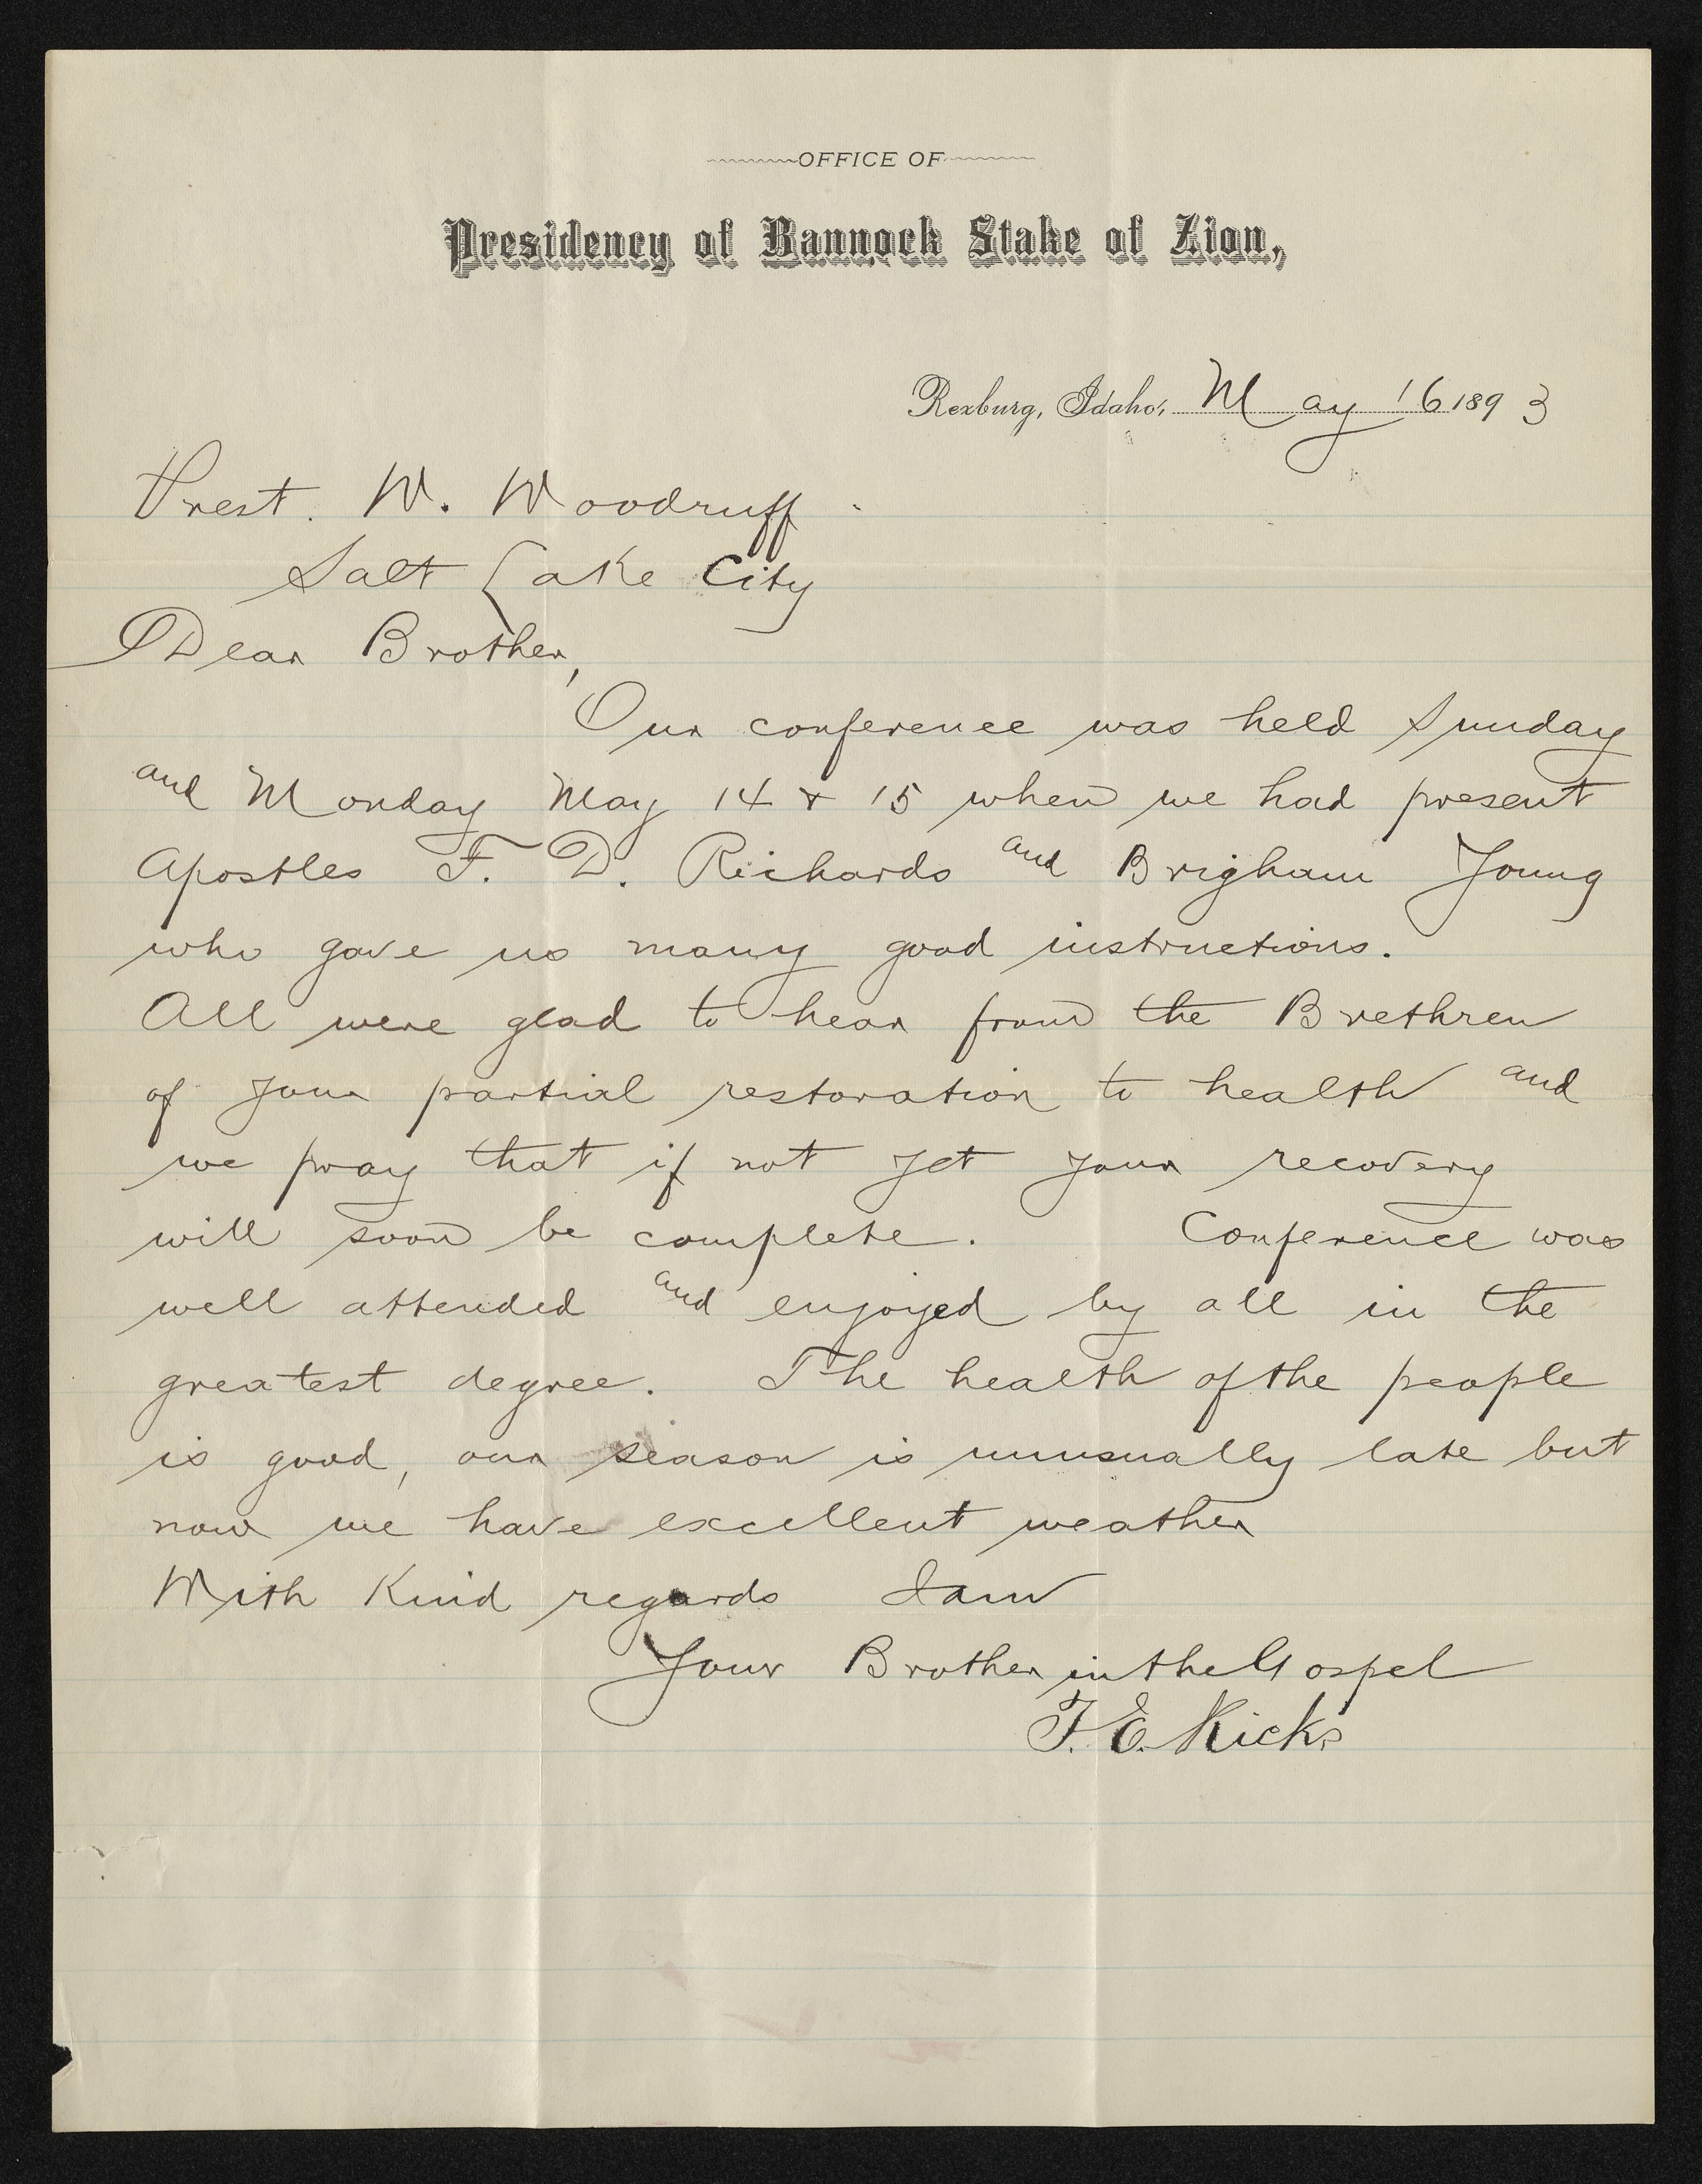 OFFICE OF
Presidency of Bannock Stake of Zion,
Rexburg, Idaho, May 16 1893
Prest. W. Woodruff.
Salt Lake City
Dear Brother,
Our conference was held Sunday
and Monday May 14 & 15 when we had present
Apostles F. D. Richards and Brigham Young
who gave us many good instructions.
All were glad to hear from the Brethren
of your partial restoration to health and
we pray that if not yet your recovery
will soon be complete. Conference was
well attended and enjoyed by all in the
greatest degree. The health of the people
is good, our season is unusually late but
now we have excellent weather
With Kind regards I am
Your Brother in the Gospel
T. E. Ricks